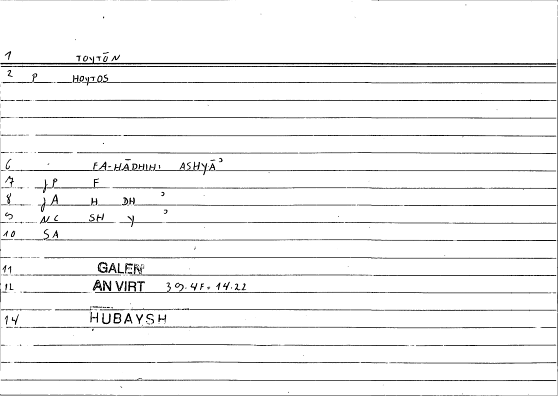 1 TOYTŌN
2 P HOYTOS
6 FA-HĀDHIHI ASHYĀʾ
7 JP F
8 JA H DH ʾ
9 NC SH Y ʾ
10 SA
11 GALEN
12 AN VIRT 39.4F. 14.22
14 HUBAYSH